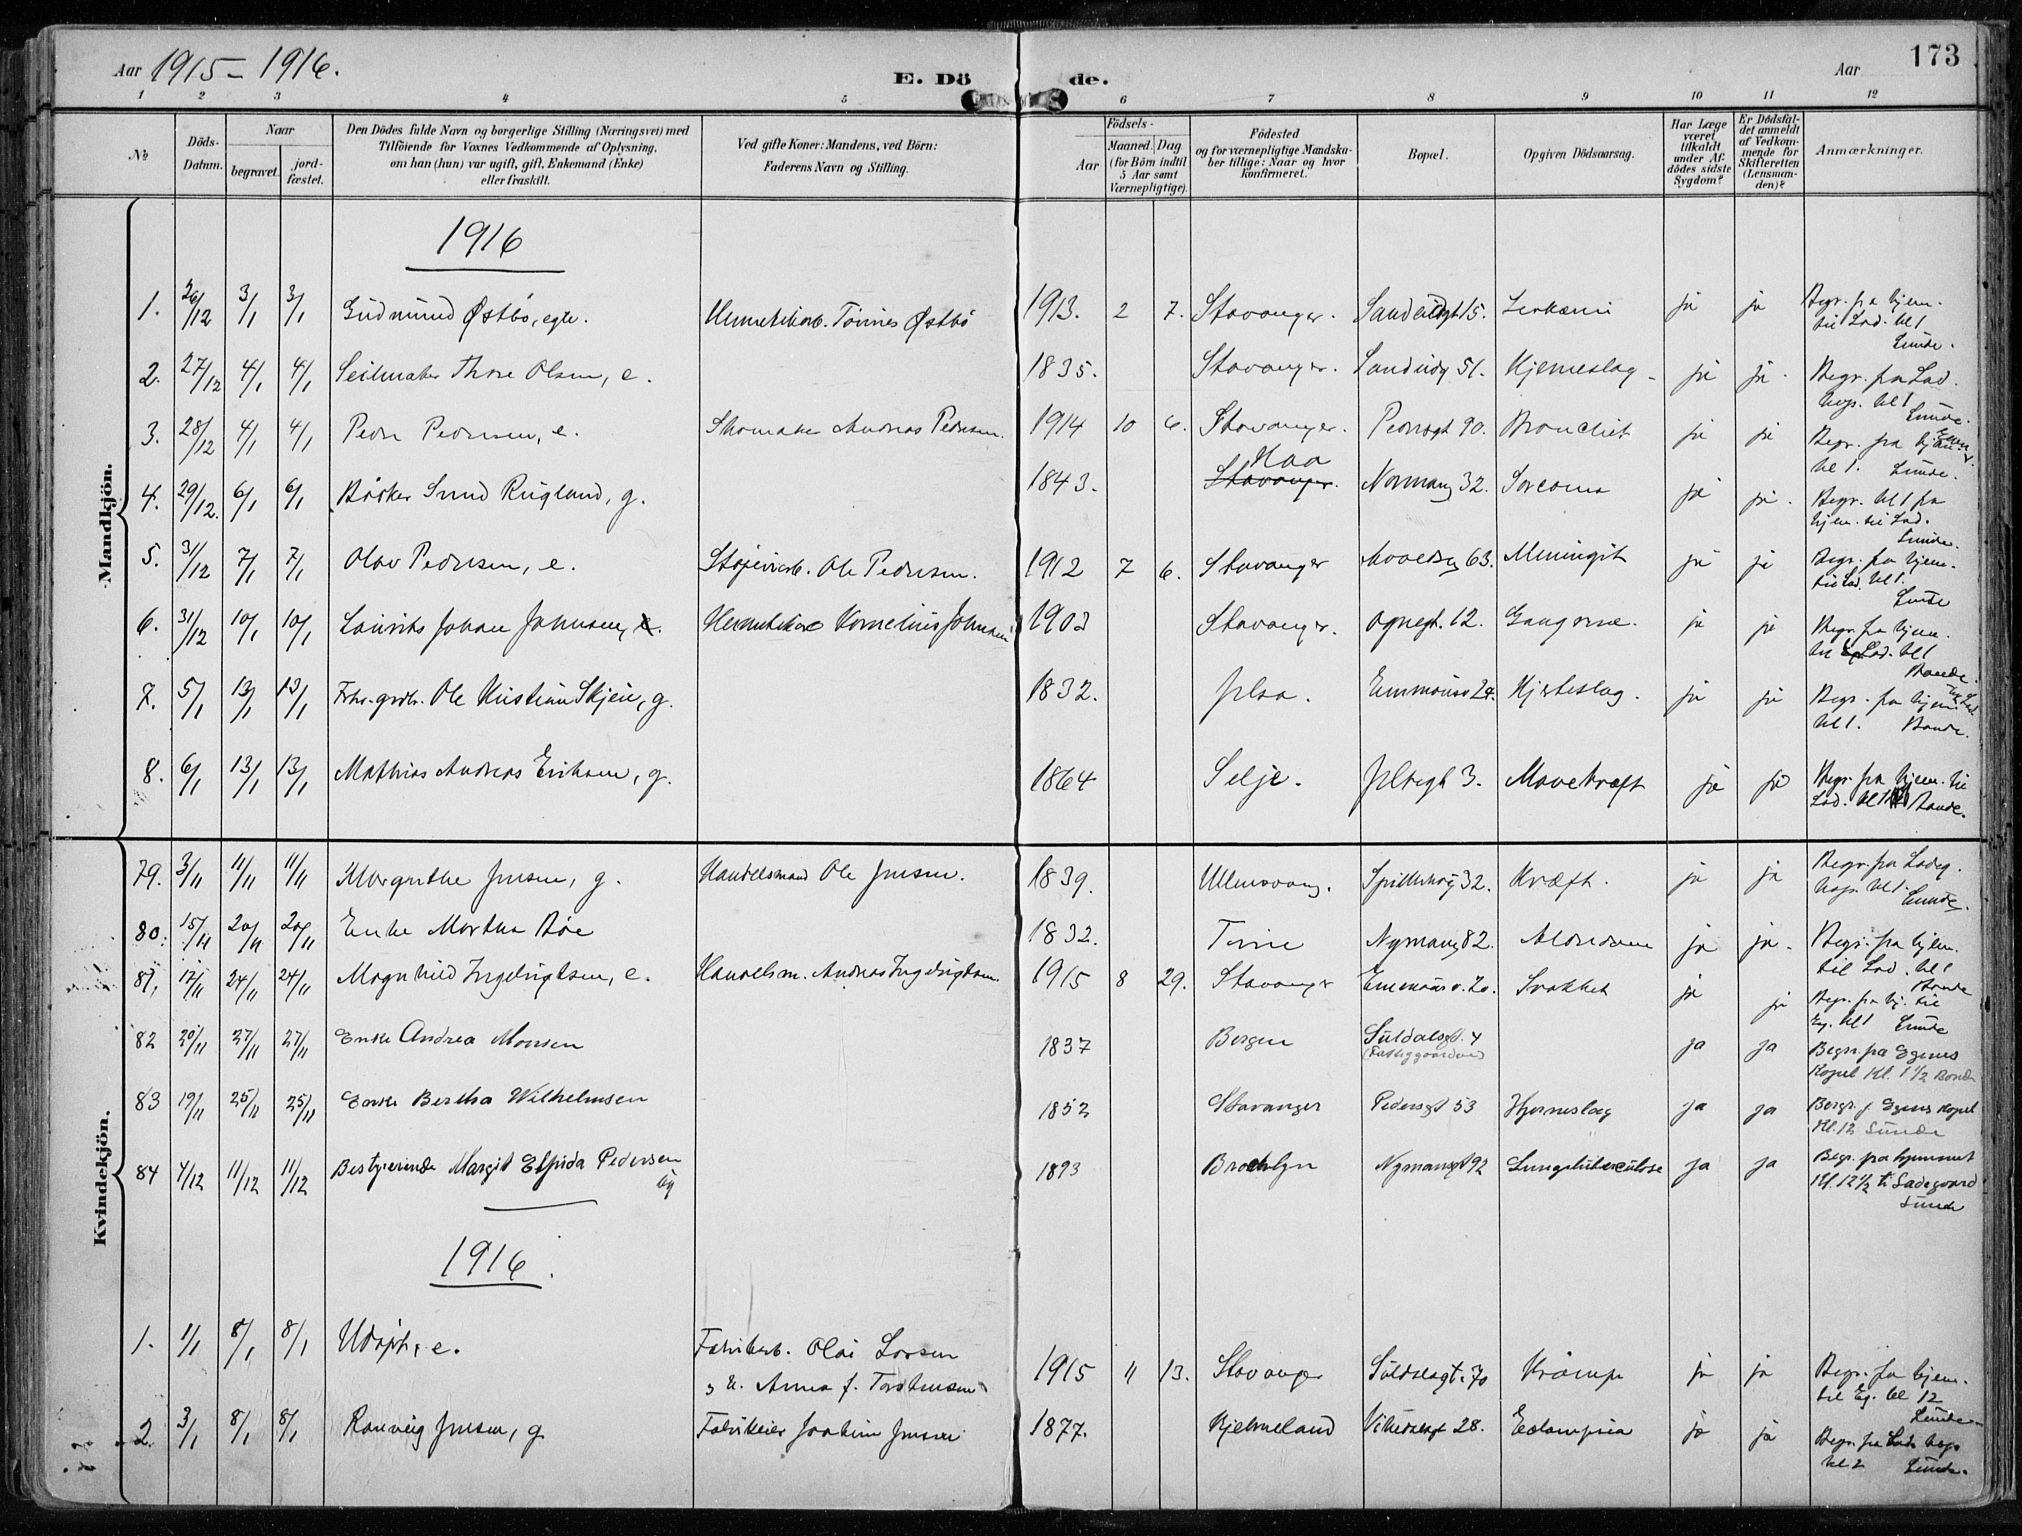 Aar 1915-1916.
E. Dö de.
Aar 173
1 2 3 4 5 6 7 8 9 10 11 12
No
Döds-Datum.
Naar
begravet.
jord-fæstet.
Den Dödes fulde Navn og borgerlige Stilling (Næringsvei) med
Tilföiende for Voxnes Vedkommende af Oplysning,
om han (hun) var ugift, gift, Enkemand (Enke)
eller fraskilt.
Ved gifte Koner: Mandens, ved Börn:
Faderens Navn og Stilling.
Födsels-
Aar
Maaned. Dag
(for Börn indtil
5 Aar samt
Værnepligtige).
Födested
og for værnepligtige Mandska-
ber tillige: Naar og hvor
konfirmeret.
Bopæl.
Opgiven Dödsaarsag.
Har Læge
været
tilkaldt
under Af-
dödes sidste
Sygdom?
Er Dödsfal-
det anmeldt
af Vedkom-
mende for
Skifteretten
(Lensman-
den)?
Anmærkninger.
Mandkjön.
1916
1. 26/12 3/1 3/1 Gudmund Østbö, egte. Hermetikarb. Tönnes Østbö 1913. 2 7. Stavanger. 15. ja ja Begr. fra hjem.
til Lad. kl 1
Lunde.
2. 27/12 4/1 4/1 Seilmaker Thore Olsen, e. 1835. Stavanger. 51. Hjerneslag ja ja. Begr. fra Lad.
kl 1
Lunde.
3. 28/12 4/1 4/1 Peder Pedersen, e. Skomaker Andreas Pedersen. 1914 10 6. Stavanger. Pedersgt 90. Bronchit ja ja Begr. fra
kl 1. Lunde.
4. 29/12. 6/1 6/1 Bödker Rugland, g. 1843. Haa Stavanger. 32. Sarcoma ja ja. Begr. kl 1 fra
hjem. til Lad.
Lunde.
5. 31/12 7/1 7/1 Olav Pedersen, e. Ole Pedersen. 1912 7 6. Stavanger 63. Meningit ja ja Begr. fra hjem.
til Lad. kl 1.
Lunde
6. 31/12 10/1 10/1 Laurits Johan Johnsen, e. Kornelius Johnsen 1903 Stavanger. Ognegt. 12. Gangrene. ja ja Begr. fra hjem.
til Lad. kl 1
Bonde.
7. 5/1 13/1 13/1 Ole Kristian Skjein, g. 1832. Jelsa. Emmausv 24. Hjerteslag. ja ja Begr. fra hjem. til Lad
kl 1. Bonde.
8. 6/1 13/1 13/1 Mathias Andreas Eriksen, g. 1864 Selje. 3. Mavekræft ja ja Begr. fra hjem. til
Lad. kl 1 Bonde.
Kvindekjön.
79. 3/11 11/11 11/11 Margrethe Jensen, g. Handelsmand Ole Jensen. 1839. Ullensvang. 32. Kræft. ja ja Begr. fra Ladeg.
kl 1.
Lunde.
80. 15/11 20/11 20/11 Enke Martha Böe 1832. Time 82. Alderdom ja ja. Begr. fra hjem.
til Lad. kl 1
Bonde
81. 17/11 24/11 24/11 Magnhild Ingebrigtsen, e. Handelsm. Andreas Ingebrigtsen 1915 8 29. Stavanger Emmausv. 20. ja ja Begr. fra hj. til
Eg. kl 1 Lunde
82 20/11 27/11 27/11 Enke Andrea Monsen 1837 Bergen Suldalsgt. 4
(Fattiggaarden) ja ja Begr. fra Egenes
Kapel Kl. 1 1/2 Bonde
83 19/11 25/11 25/11 Enke Bertha Wilhelmsen 1852 Stavanger Pedersgt 53 Hjerneslag ja ja Begr. f. Egenes Kapel
Kl. 12 Lunde
84 4/12 11/12 11/12 Bestyrerinde Margit Elfrida Pedersen
ug 1893 Brooklyn Nymansgt 92 Lungetuberculose ja ja Begr. fra hjemmet
Kl. 12 1/2 til Ladegaard
Lunde
1916.
1. 1/1 8/1 8/1 Udöpt, e. Fabrikarb. Olai Larsen
o. h. Anna J. Torstensen 1915 11 13. Stavanger Suldalsgt. 70 Krampe ja ja Begr. fra hjem.
til Eg. kl 12
Lunde
2. 3/1 8/1 8/1 Ranveig Jensen, g Joakim Jensen 1877. Hjelmeland Vikedalsgt 28. Eclampsia ja ja Begr. fra Lad
kl 2 Lunde.